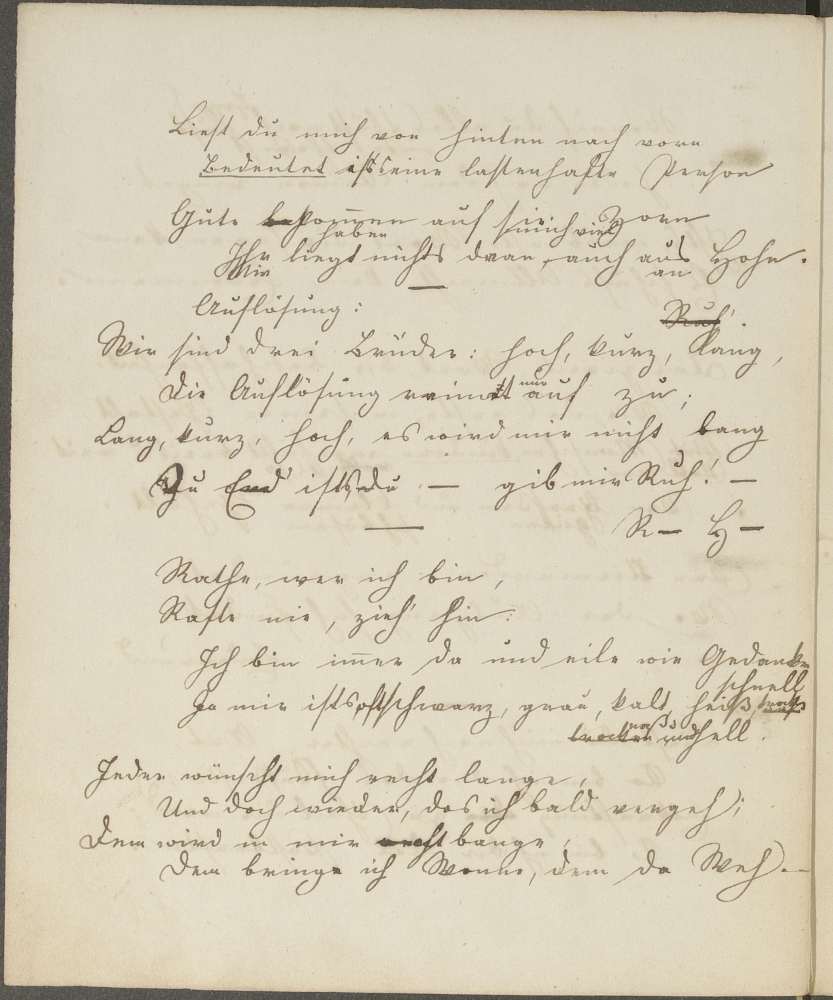 Liest du mich von hinten nach vorn
Bedeutet ists eine lasterhafte Person
Gute bekommen auf sich Zorn
haben mich viel
Ihr liegt nichts dran, auch aus Hohn.
Mir an
Auflösung:
Ruh'.
Wir sind drei Brüder: hoch, kurz, lang,
Die Auflösung reimt nur auf zu;
Lang, kurz, hoch, es wird mir nicht bang
Zu End ists du — gib mir Ruh! —
R— H—
Rathe, wer ich bin,
Raste nie, zieh' hin:
Ich bin immer da und eile wie Gedanken
schnell
In mir ists oft schwarz, grau, kalt, heiß,
naß
trocken und hell.
Jeder wünscht mich recht lange,
Und doch wieder, das ich bald vergeh';
Dem wird in mir recht bange,
Dem bringe ich Wonne, dem da Weh. —